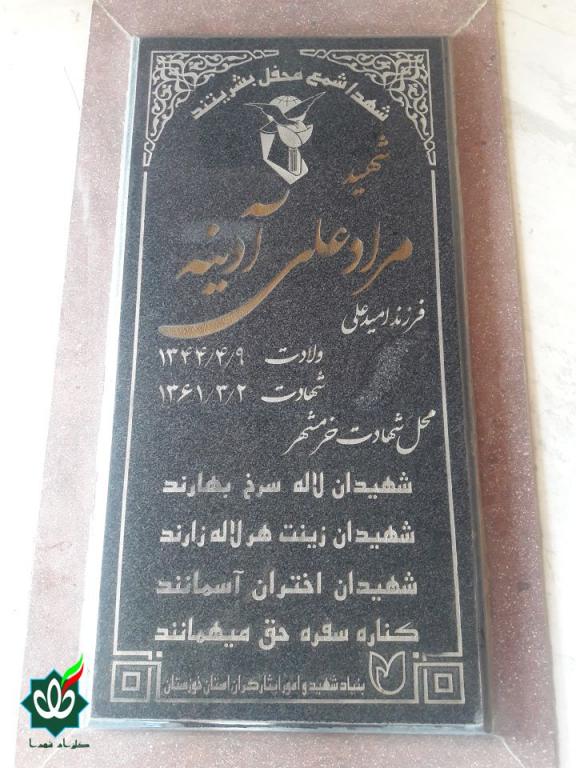 شهدا شمع محفل بشریتند
شهید
مراد علی آدینه
فرزند امید علی
ولادت ۱۳۴۴/۴/۹
شهادت ۱۳۶۱/۳/۲
محل شهادت خرمشهر
شهیدان لاله سرخ بهارند
شهیدان زینت هر لاله زارند
شهیدان اختران آسمانند
کناره سفره حق میهمانند
بنیاد شهید و امور ایثارگران استان خوزستان
گلزار شهدا